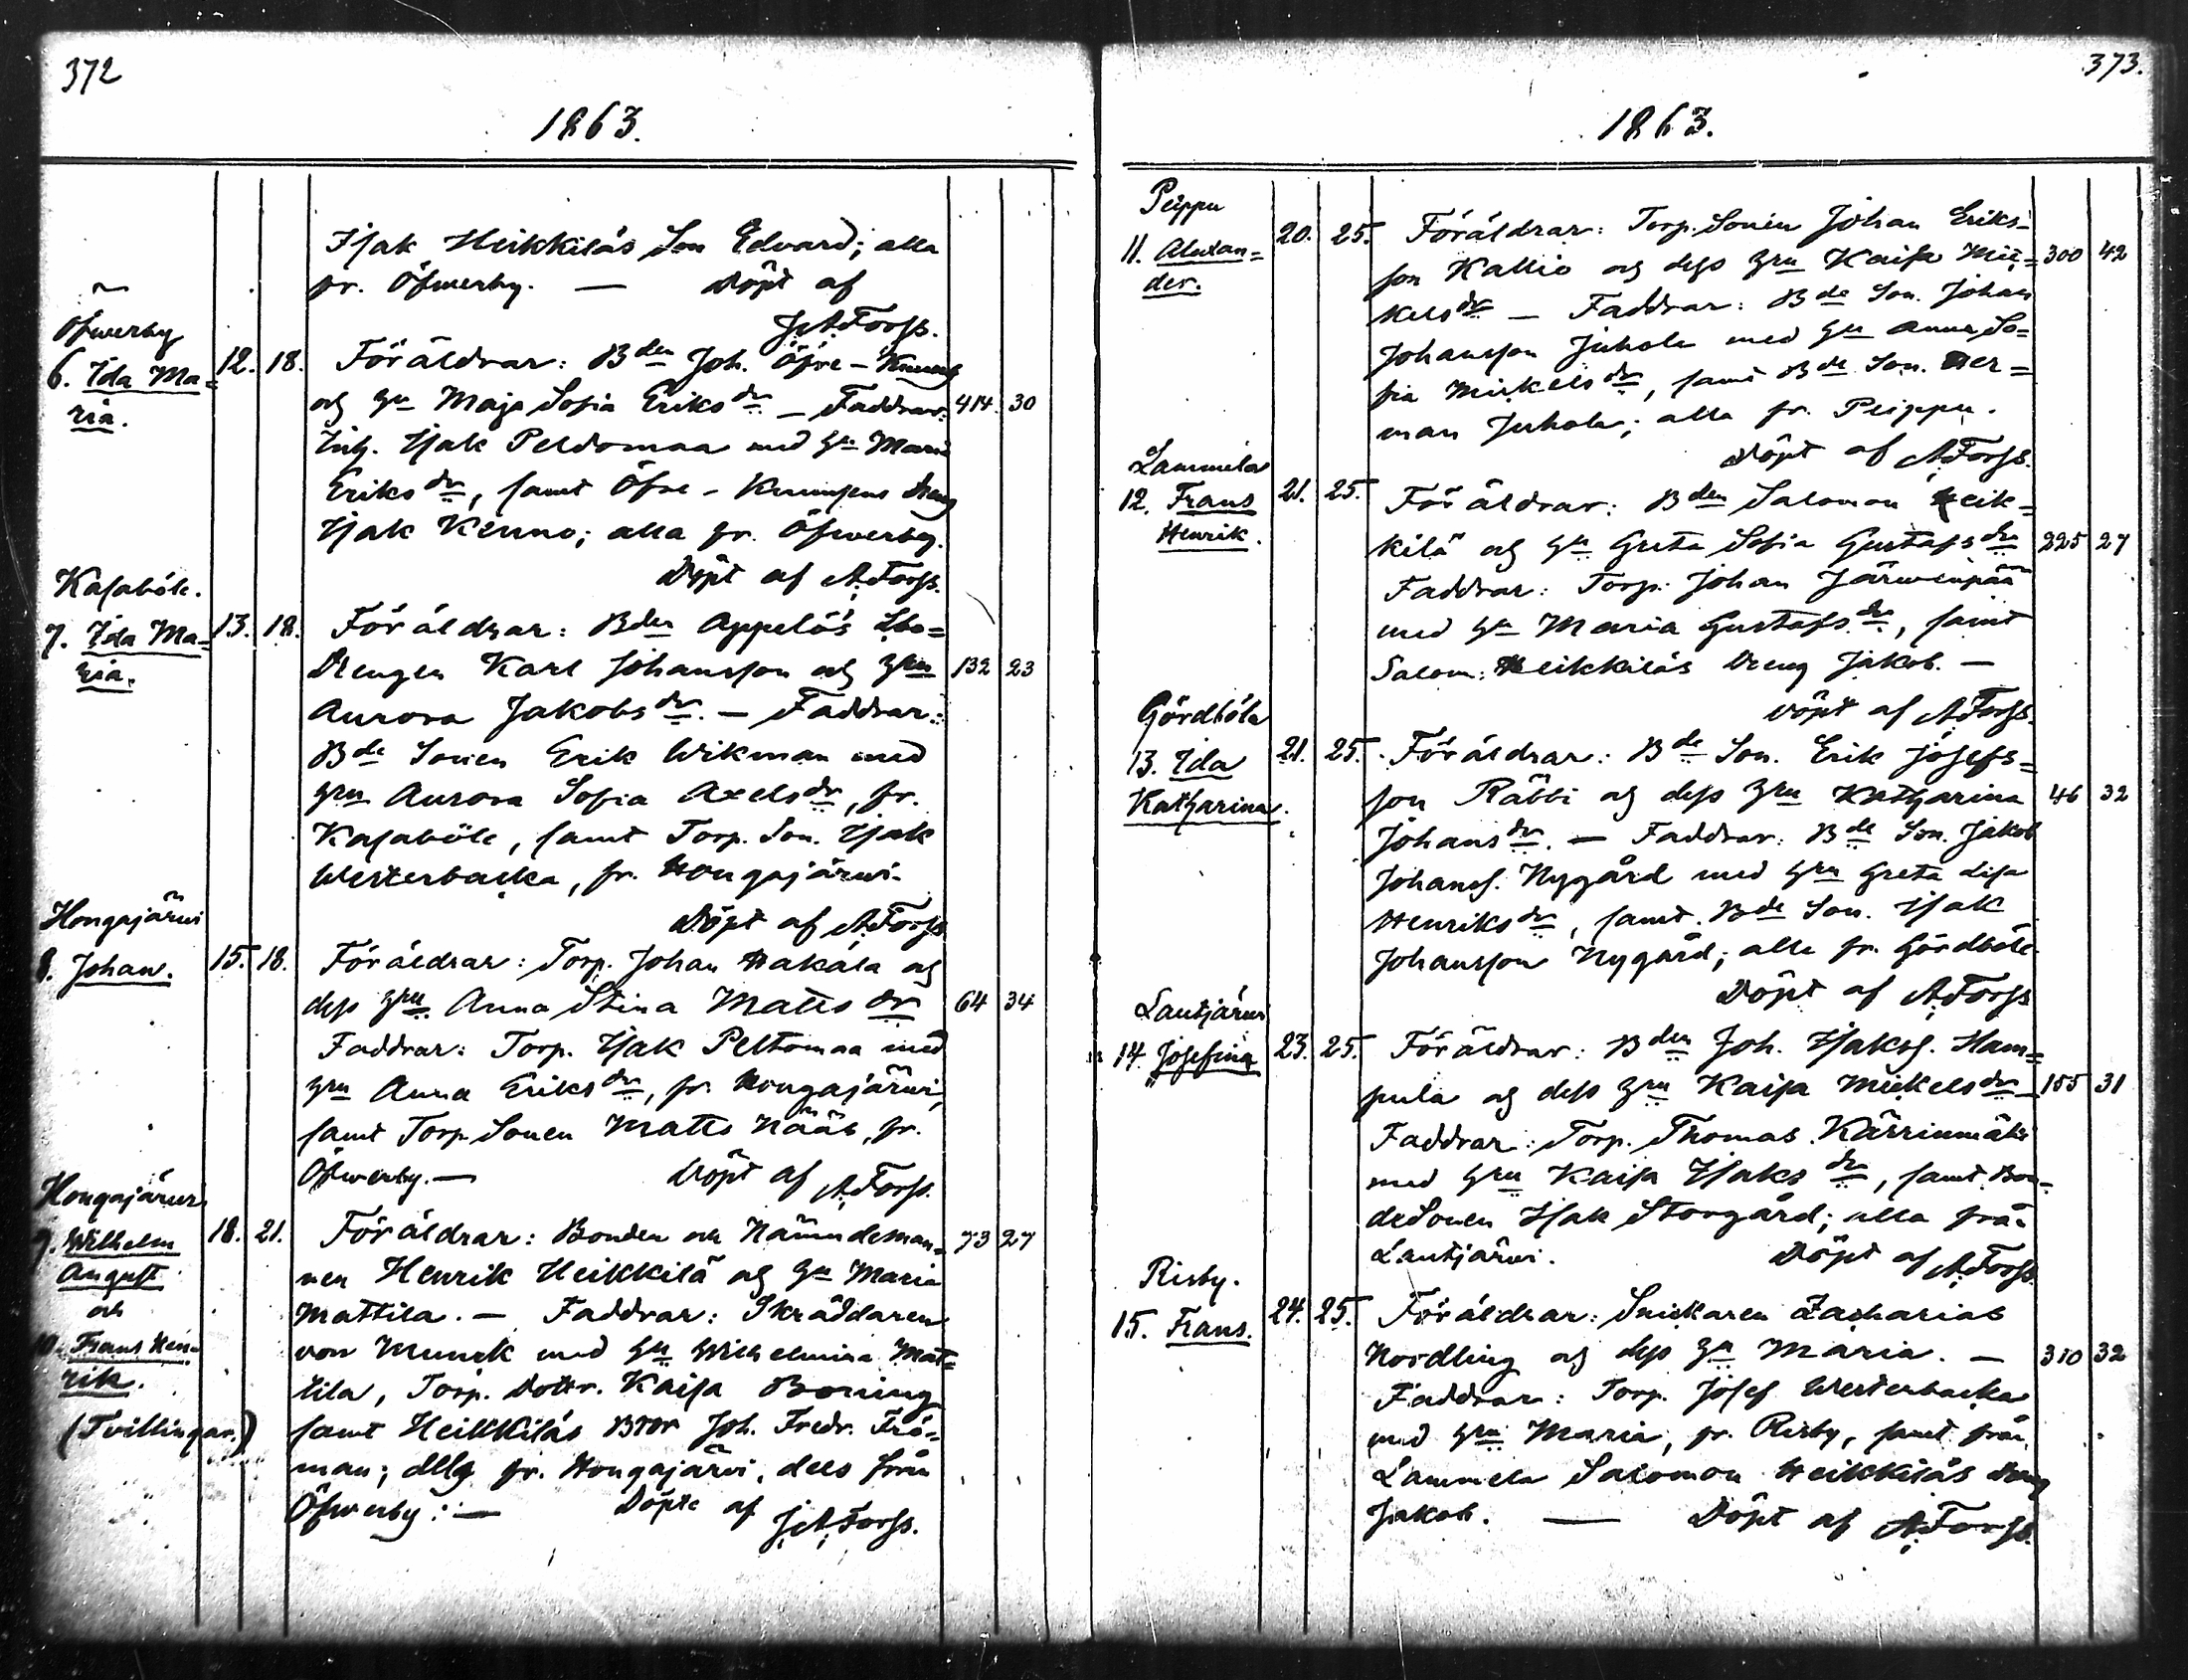 372
1863.
Isak Heikkiläs Son Edvard; alla
fr. Öfverby. — Döpt af
JAForss.
Öfverby
6. Ida Ma=
ria.
12. 18.
Föräldrar: Bden Joh. Öfre-
og hu Maja Sofia Eriksdr — Faddrar:
414. 30
Inh. Isak Peldomaa med hu Maria
Eriksdr, samt Öfre-Knuussens Dreng
Isak Kenno; alla fr. Öfverby.
Döpt af AForss.
Kasaböle.
7. Ida Ma=
ria.
13. 18.
Föräldrar: Bden Appelös
Drengen Karl Johansson og hru
132 23
Aurora Jakobsdr. — Faddrar:
Bde Sonen Erik Wikman med
hru Aurora Sofia Axelsdr, fr.
Kasaböle, samt Torp. Son. Isak
Westerbacka, fr. Hongajärwi.
Döpt af AForss
Hongajärwi
8. Johan.
15. 18.
Föräldrar: Torp. Johan Hakala og
dess hru Anna Stina Matts dr
64 34
Faddrar: Torp. Isak Peltomaa med
hru Anna Eriksdr, fr. Hongajärwi,
samt Torp. Sonen Matts Nääs, fr.
Öfverby. — Döpt af AForss.
Hongajärwi
9. Wilhelm
August
och
10. Frans Hen=
rik.
(Tvillingar.)
18. 21.
Föräldrar: Bonden och Nämndeman=
73 27
nen Henrik Heikkilä og hu Maria
Mattila. — Faddrar: Skräddaren
von Munck med hu Wilhelmina Mat=
tila, Torp. Dottr. Kaisa Boning
samt Heikkiläs Bror Joh. Fredr. Frö=
man; dels fr. Hongajärvi, dels från
Öfverby: — Döpte af
JAForss.
373.
1863.
Peippu
11. Alexan=
der.
20. 25.
Föräldrar: Torp. Sonen Johan Eriks=
son Kallio og dess hru Kaisa Mic=
300 42
kelsdr — Faddrar: Bde Son. Johan
Johansson Juhola med hu Anna So=
fia Mickelsdr, samt Bde Son. Her=
man Juhola; alla fr. Peippu.
Döpt af AForss.
Lammela
12. Frans
Henrik.
21. 25.
Föräldrar: Bden Salomon Heik=
kilä og hu Greta Sofia Gustafsdr
225 27
Faddrar: Torp. Johan Järwenpää
med hu Maria Gustafsdr, samt
Salom: Heikkiläs Dreng Jakob. —
Döpt af AForss.
Gördböle
13. Ida
Katharina.
21. 25.
Föräldrar: Bde Son. Erik Josefs=
son Räbbi og dess hru Katharina
46 32
Johansdr. — Faddrar: Bde Son. Jakob
Johanss. Nygård med hru Greta Lisa
Henriksdr, samt Bde Son. Isak
Johansson Nygård; alla fr. Gördböle.
Döpt af AForss
Lautjärwi
14. Josefina
23. 25.
Föräldrar: Bden Joh. Isakss. Ham=
pula og dess hru Kaisa Mickelsdr
155 31
Faddrar: Torp. Thomas Kärrinmäki
med hru Kaisa Isaks dr, samt Bon=
deSonen Isak Storgård; alla från
Lautjärwi. Döpt af AForss.
Risby.
15. Frans.
24. 25.
Föräldrar: Snickaren Zacharias
Nordling og dess hu Maria. —
310 32
Faddrar: Torp. Josef Westerbacka
med hru Maria, fr. Risby, samt från
Lammela Salomon Heikkiläs Dreng
Jakob. — Döpt af AForss.